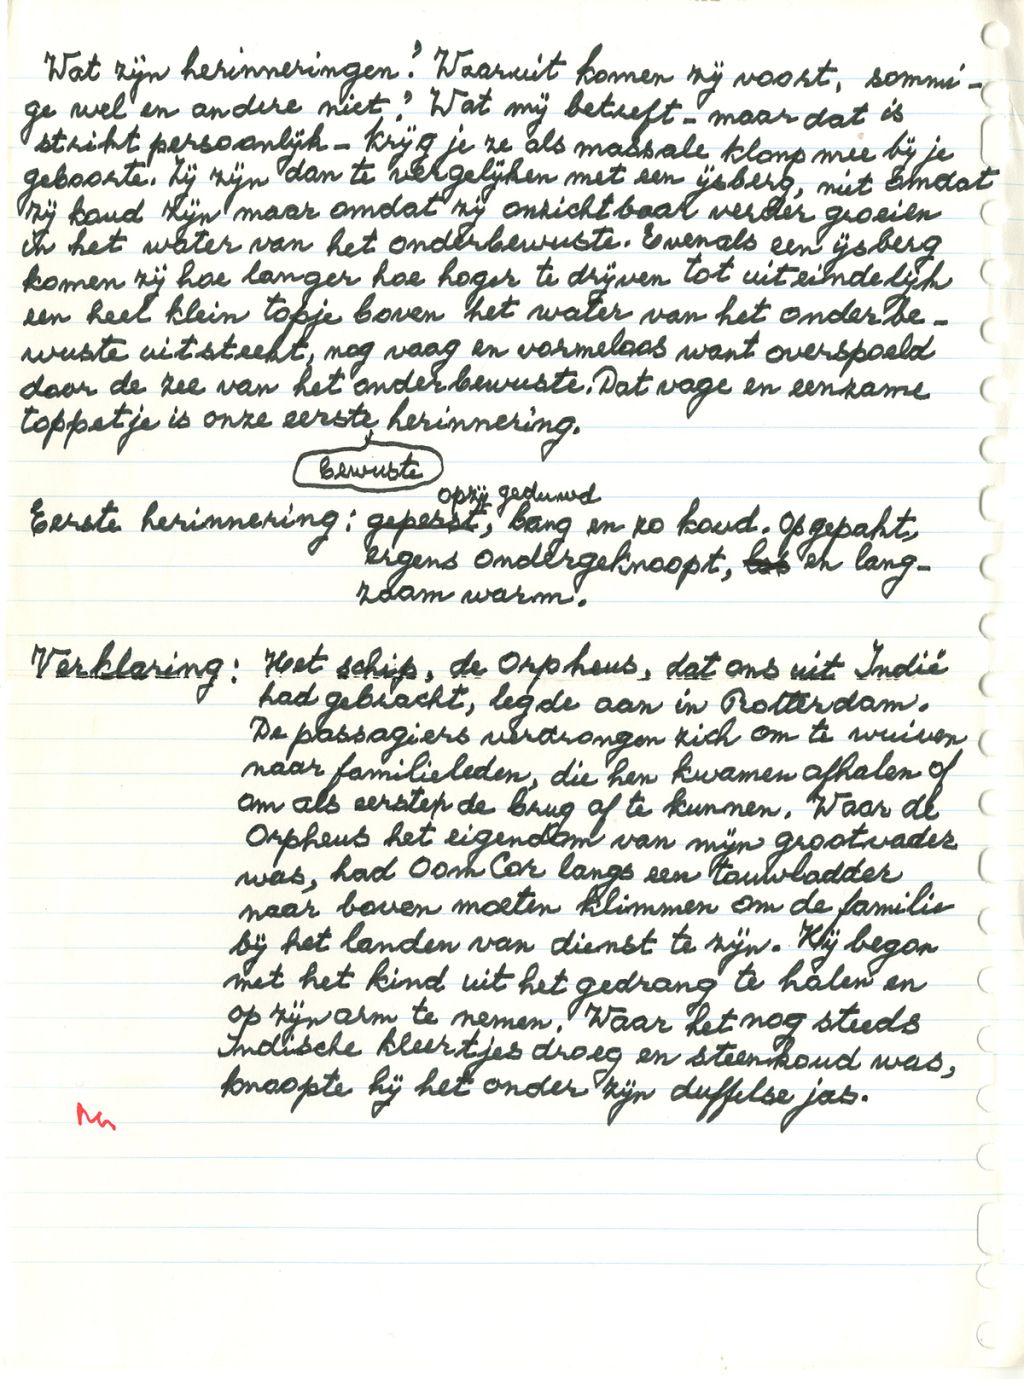 Wat zijn herinneringen? Waaruit komen zij voort, sommi-
ge wel en andere niet? Wat mij betreft - maar dat is
strikt persoonlijk - krijg je ze als massale klomp mee bij je
geboorte. Zij zijn dan te vergelijken met een ijsberg, niet omdat
zij koud zijn maar omdat zij onzichtbaar verder groeien
in het water van het onderbewuste. Evenals een ijsberg
komen zij hoe langer hoe hoger te drijven tot uiteindelijk
een heel klein topje boven het water van het onderbe-
wuste uitsteekt, nog vaag en vormeloos want overspoeld
door de zee van het onderbewuste. Dat vage en eenzame
toppetje is onze eerste herinnering.
bewuste
opzij geduwd
Eerste herinnering: geperst, bang en zo koud. Opgepakt,
ergens ondergeknoopt, los en lang-
zaam warm.
Verklaring: Het schip, de Orpheus, dat ons uit Indië
had gebracht, legde aan in Rotterdam.
De passagiers verdrongen zich om te wuiven
naar familieleden, die hen kwamen afhalen of
om als eersten de brug af te kunnen. Waar de
Orpheus het eigendom van mijn grootvader
was, had Oom Cor langs een touwladder
naar boven moeten klimmen om de familie
bij het landen van dienst te zijn. Hij begon
met het kind uit het gedrang te halen en
op zijn arm te nemen. Waar het nog steeds
Indische kleertjes droeg en steenkoud was,
knoopte hij het onder zijn duffelse jas.